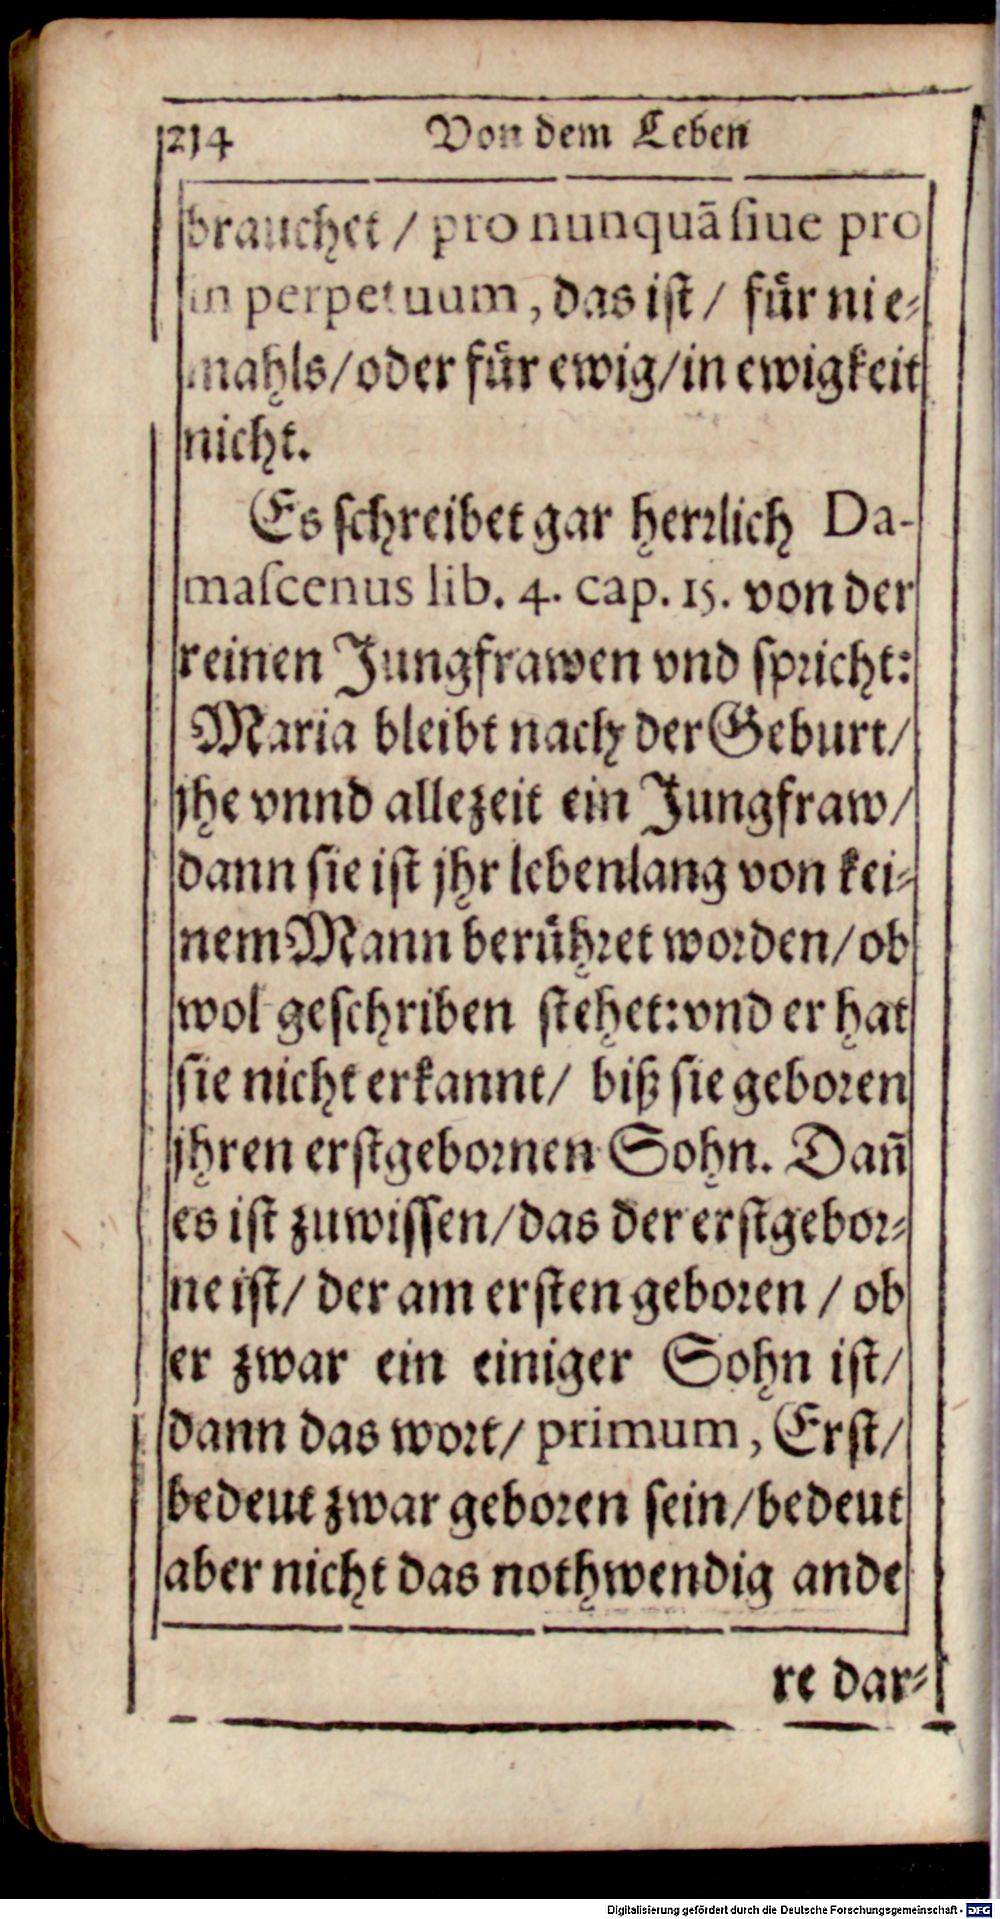 214 Von dem Leben
brauchet / pro nunquā ſiue pro
in perpetuum, das iſt / fůr nie⸗
mahls / oder fůr ewig / in ewigkeit
nicht.
Es ſchreibet gar herꝛlich Da-
maſcenus lib. 4. cap. 15. von der
reinen Jungfrawen vnd ſpricht:
Maria bleibt nach der Geburt /
jhe vnnd allezeit ein Jungfraw /
dann ſie iſt jhr lebenlang von kei⸗
nem Mann berůhꝛet woꝛden / ob
wol geſchriben ſtehet: vnd er hat
ſie nicht erkannt / biß ſie geboꝛen
jhren erſtgeboꝛnen Sohn. Dañ
es iſt zuwiſſen / das der erſtgeboꝛ⸗
ne iſt / der am erſten geboꝛen / ob
er zwar ein einiger Sohn iſt /
dann das woꝛt / primum, Erſt /
bedeut zwar geboꝛen ſein / bedeut
aber nicht das nothwendig ande
re dar⸗
Digitalisierung gefördert durch die Deutsche Forschungsgemeinschaft - DFG